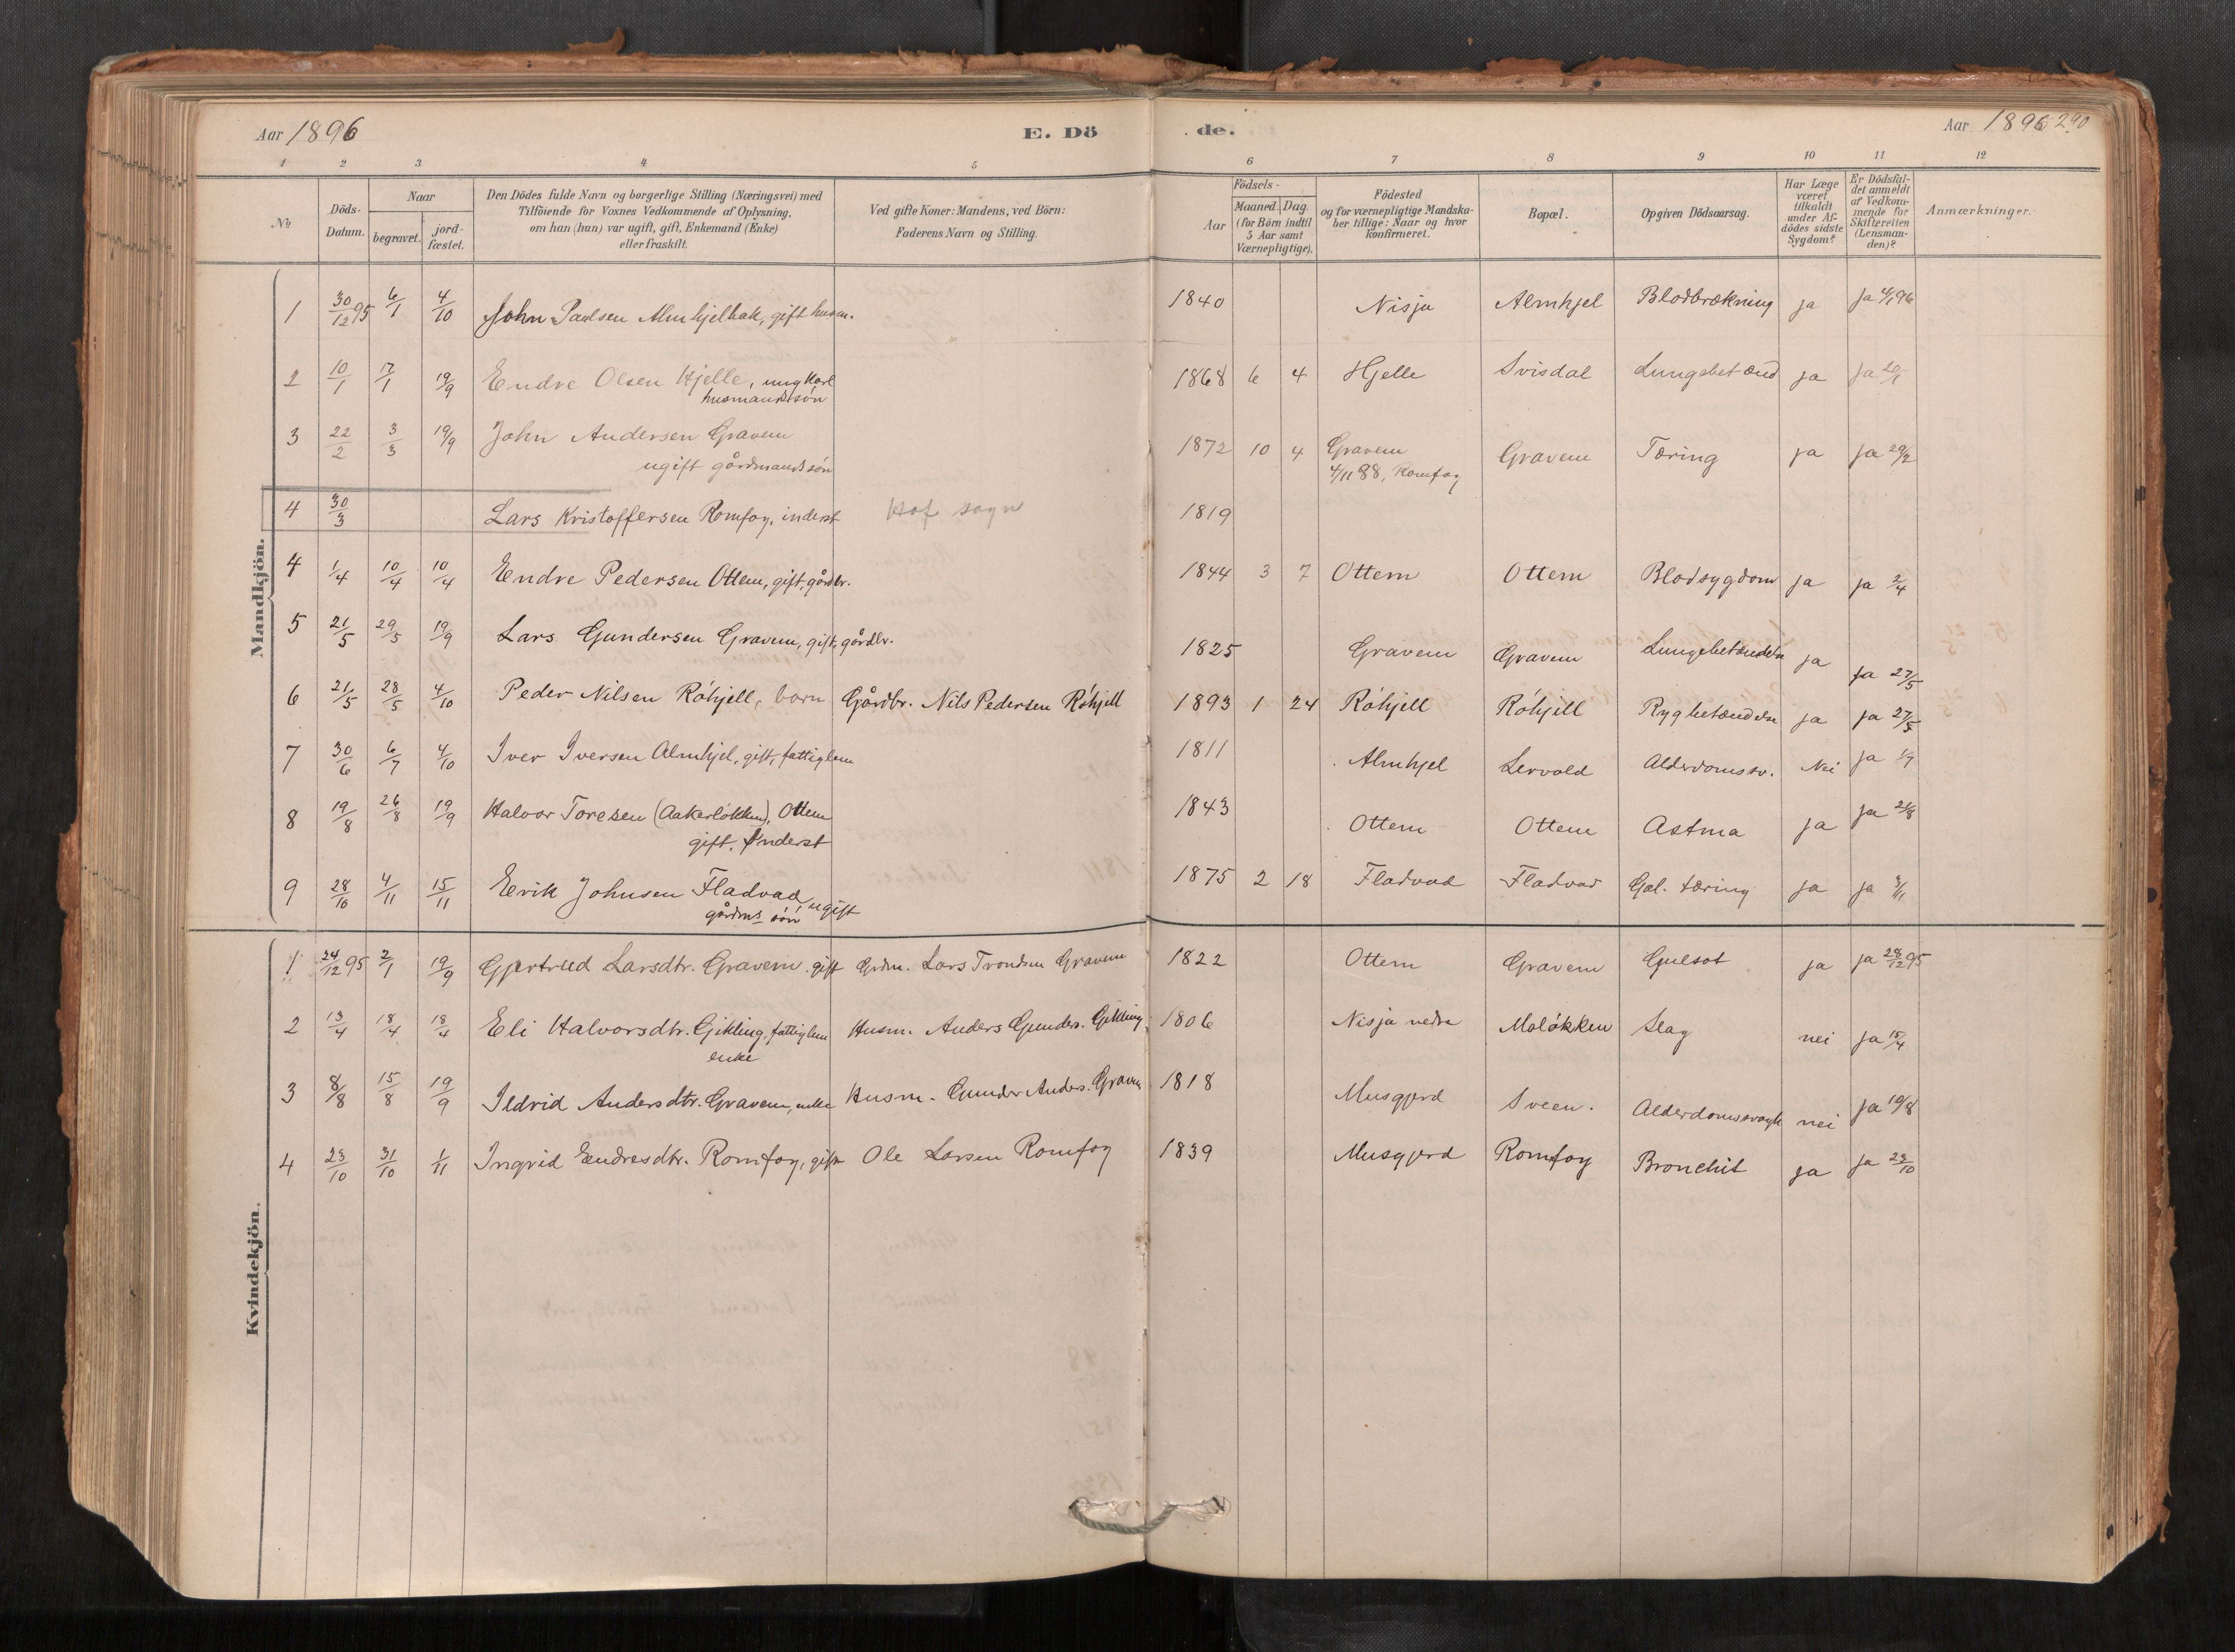 Aar 1896
E. Dö
de.
Aar 1896 290
1 2 3 4 5 6 7 8 9 10 11 12
No
Döds-Datum.
Naar
begravet.
jord-fæstet.
Den Dödes fulde Navn og borgerlige Stilling (Næringsvei) med
Tilföiende for Voxnes Vedkommende af Oplysning,
om han (hun) var ugift, gift, Enkemand (Enke)
eller fraskilt.
Ved gifte Koner: Mandens, ved Börn:
Faderens Navn og Stilling.
Födsels-
Aar
Maaned. Dag.
(for Börn indtil
5 Aar samt
Værnepligtige).
Födested
og for værnepligtige Mandska-
ber tillige: Naar og hvor
konfirmeret.
Bopæl.
Opgiven Dödsaarsag.
Har Læge
været
tilkaldt
under Af-
dödes sidste
Sygdom?
Er Dödsfal-
det anmeldt
af Vedkom-
mende for
Skifteretten
(Lensman-
den)?
Anmærkninger.
Mandkjön.
1 30/12 95 6/1 4/10 John Paulsen Almhjelbak, gift husm. 1840 Nisja Almhjel Blodbrækning ja ja 4/1 96
2 10/1 17/1 19/9 Endre Olsen Hjelle, ungkarl 1868 6 4 Hjelle Svisdal Lungebetænd ja ja 20/1
husmandssön
3 22/2 3/3 19/9 John Andersen Gravem 1872 10 4 Gravem Gravem Tæring ja ja 29/2
ugift gårdmandssön 4/11 88, Romfog
4 30/3 Lars Kristoffersen Romfog, inderst Hof sogn 1819
4 1/4 10/4 10/4 Endre Pedersen Ottem, gift, gårdbr. 1844 3 7 Ottem Ottem Blodsygdom ja ja 2/4
5 21/5 29/5 19/9 Lars Gundersen Gravem, gift, gårdbr. 1825 Gravem Gravem Lungebetændelse ja ja 27/5
6 21/5 28/5 4/10 Peder Nilsen Röhjell, barn Gårdbr. Nils Pedersen Röhjell 1893 1 24 Röhjell Röhjell Rygbetændelse ja ja 27/5
7 30/6 6/7 4/10 Iver Iversen Almhjel, gift, fattiglem 1811 Almhjel Lervold Alderdomssv. Nei ja 1/7
8 19/8 26/8 19/9 Halvor Toresen (Aakerlökken), Ottem 1843 Ottem Ottem Astma ja ja 21/8
gift. Inderst
9 28/10 4/11 15/11 Eerik Johnsen Fladvad, ugift 1875 2 18 Fladvad Fladvad Gal. tæring ja ja 3/11
gårdms sön
Kvindekjön.
1 24/12 95 2/1 19/9 Gjertrud Larsdtr. Gravem. gift Grdm. Lars Trondsen Gravem 1822 Ottem Gravem Gulsot ja ja 28/12 95
2 13/4 18/4 18/4 Eli Halvorsdtr. Gjikling, fattiglem Husm. Anders Gunders. Gjikling 1806 Nisja nedre Molökken Slag nei ja 15/4
enke
3 8/8 15/8 19/9 Ildrid Andersdtr. Gravem, enke Husm. Gunder Anders. Gravem 1818 Musgjerd Sveen. Alderdomssvagh nei ja 10/8
4 23/10 31/10 1/11 Ingrid Endresdtr. Romfog, gift Ole Larsen Romfog 1839 Musgjerd Romfog Bronchit ja ja 23/10